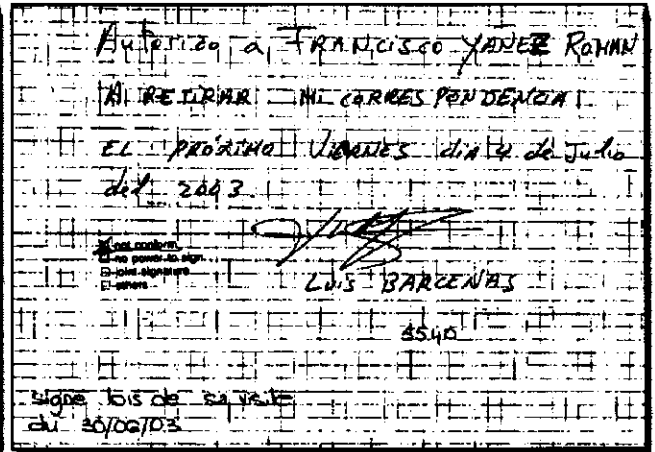 Autorizo a FRANCISCO YANEZ ROMAN
A RETIRAR MI CORRESPONDENCIA
EL PRÓXIMO VIERNES dia 4 de Julio
del 2003
not conform
no power to sign
joint signature
others
LUIS BARCENAS
5540
signé lors de sa visite
du 30/06/03